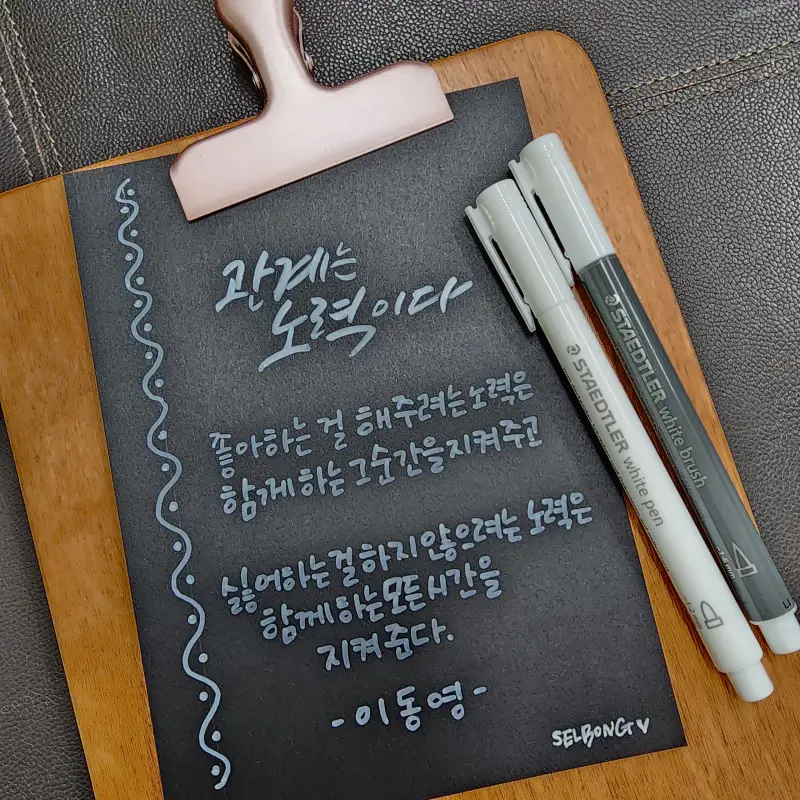 관계는
노력이다
좋아하는 걸 해주려는 노력은
함께 하는 그 순간을 지켜주고
싫어하는 걸 하지 않으려는 노력은
함께 하는 모든 시간을
지켜 준다.
- 이동영 -
SELBONG
STAEDTLER white pen
STAEDTLER white brush